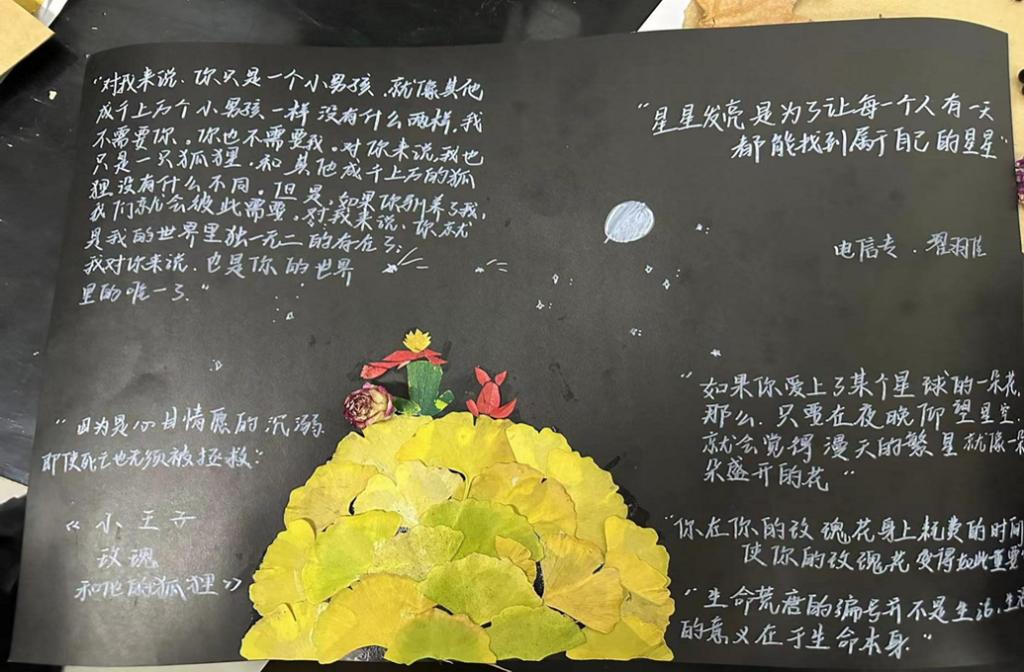 “对我来说，你只是一个小男孩，就像其他
成千上万个小男孩一样没有什么两样。我
不需要你。你也不需要我。对你来说，我也
只是一只狐狸，和其他成千上万的狐
狸没有什么不同。但是，如果你驯养了我，
我们就会彼此需要。对我来说，你就
是我的世界里独一无二的存在了；
我对你来说，也是你的世界
里的唯一了。”
“因为是心甘情愿的沉溺
即使死亡也无须被拯救”
《小王子
玫瑰
和他的狐狸》
“星星发亮是为了让每一个人有一天
都能找到属于自己的星星”
电信专·翟
“如果你爱上了某个星球的一朵花，
那么，只要在夜晚仰望星空，
就会觉得漫天的繁星就像一朵
朵盛开的花”
“你在你的玫瑰花身上耗费的时间
使你的玫瑰花变得如此重要
“生命荒唐的编号并不是生活，生活
的意义在于生命本身”